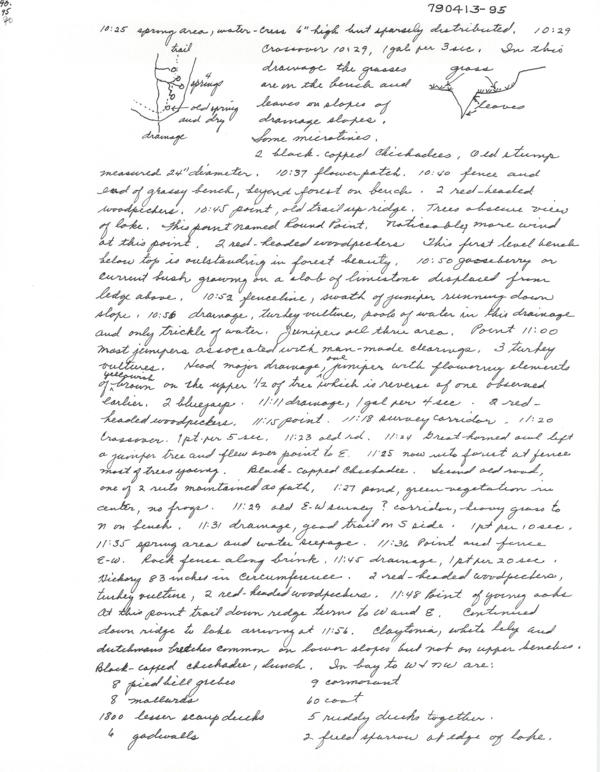 90.
95
40
790413-95
10:25 spring area, water-cress 6" high but sparsely distributed. 10:29
trail
springs
old spring
and dry
drainage
Crossover 10:29, 1 gal per 3 sec. In this
drainage the grasses
are on the bench and
leaves on slopes of
drainage slopes.
Some microtines.
grass
leaves
2 black-capped chickadees, Old stump
measured 24" diameter. 10:37 flower patch. 10:40 fence and
end of grassy bench, beyond forest on bench. 2 red-headed
woodpeckers. 10:45 point, old trail up ridge. Trees obscure view
of lake. This point named Round Point. Noticeably more wind
at this point. 2 red-headed woodpeckers This first level bench
below top is outstanding in forest beauty. 10:50 gooseberry or
currant bush growing on a slab of limestone displaced from
ledge above. 10:52 fenceline, swath of juniper running down
slope. 10:56 drainage, turkey vulture, pools of water in this drainage
and only trickle of water. Junipers all thru area. Point 11:00
most junipers associated with man-made clearings. 3 turkey
vultures. Head major drainage, one juniper with flowering elements
of yellowish brown on the upper 1/2 of tree which is reverse of one observed
earlier. 2 bluejays. 11:11 drainage, 1 gal per 4 sec. 2 red-
headed woodpeckers. 11:15 point. 11:18 survey corridor. 11:20
Crossover. 1 pt per 5 sec. 11:23 old rd. 11:24 Great-horned owl left
a juniper tree and flew over point to E. 11:25 now into forest at fence
most of trees young. Black-capped Chickadee. Second old road,
one of 2 ruts maintained as path, 1:27 pond, green-vegetation in
center, no frogs. 11:29 old E-W survey? corridor, heavy grass to
N on bench. 11:31 drainage, good trail on S side. 1 pt per 10 sec.
11:35 spring area and water seepage. 11:36 Point and fence
E-W. Rock fence along brink. 11:45 drainage, 1 pt per 20 sec.
Hickory 83 inches in Circumference. 2 red-headed woodpeckers,
turkey vulture, 2 red-headed woodpeckers. 11:48 Point of young oaks
At this point trail down ridge turns to W and E. Continued
down ridge to lake arriving at 11:56. Claytonia, white lily and
dutchmans britches common on lower slopes but not on upper benches.
Black-capped chickadee, lunch. In bay to W & NW are:
8 pied bill grebes 9 cormorant
8 mallards 60 coot
1800 lesser scaup ducks 5 ruddy ducks together.
6 gadwalls 2 field sparrow at edge of lake.